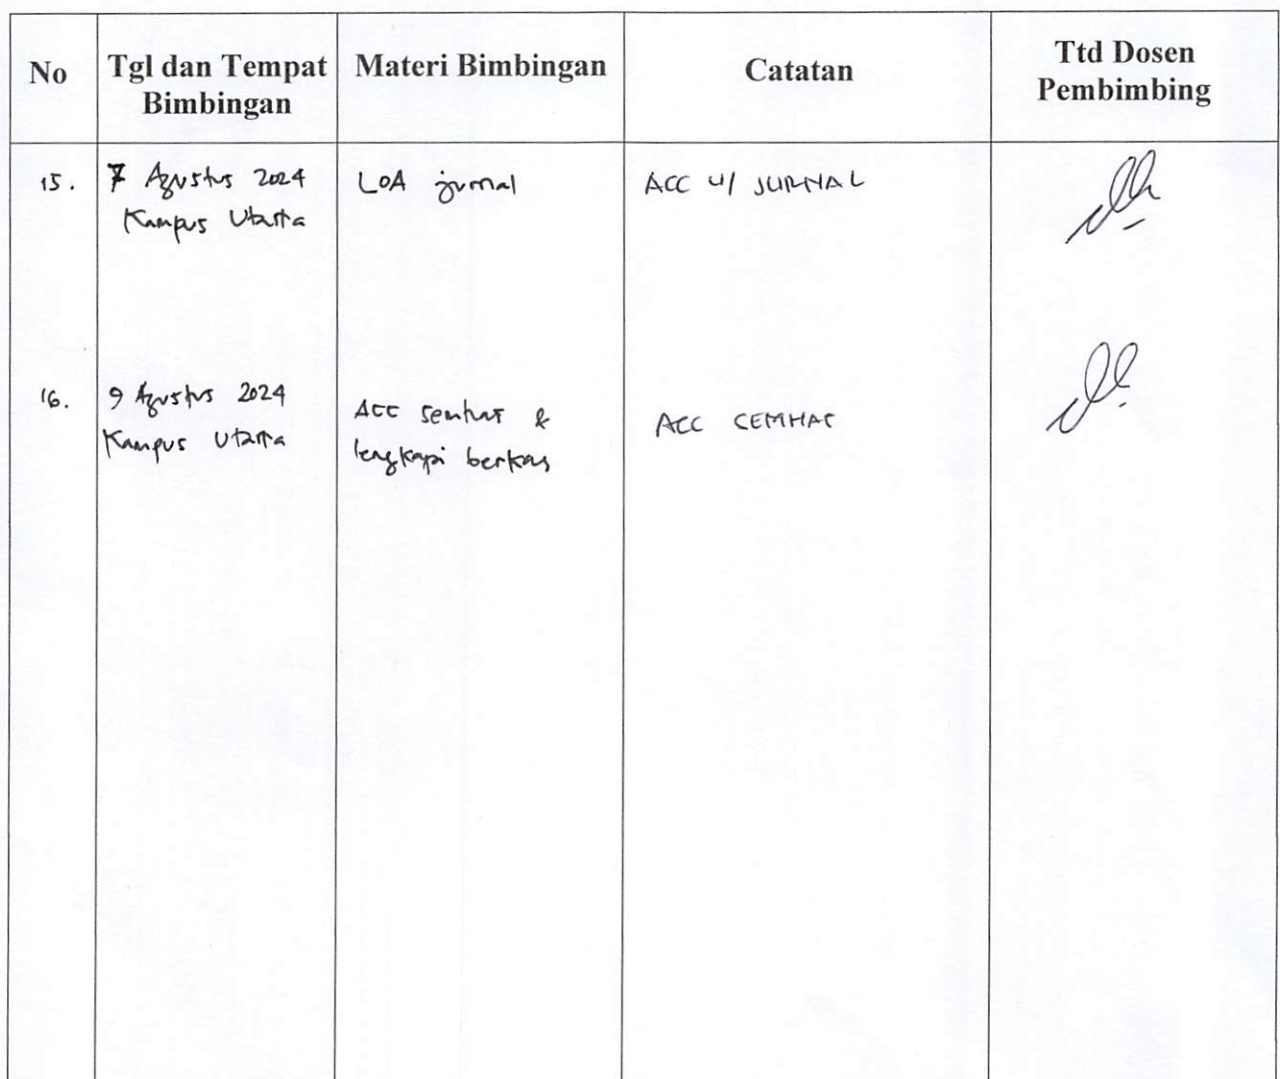 No
Tgl dan Tempat
Bimbingan
Materi Bimbingan
Catatan
Ttd Dosen
Pembimbing
15.
7 Agustus 2024
Kampus Utama
LOA jurnal
ACC U/ JURNAL
16.
9 Agustus 2024
Kampus Utama
ACC semhas &
lengkapi berkas
ACC SEMHAS